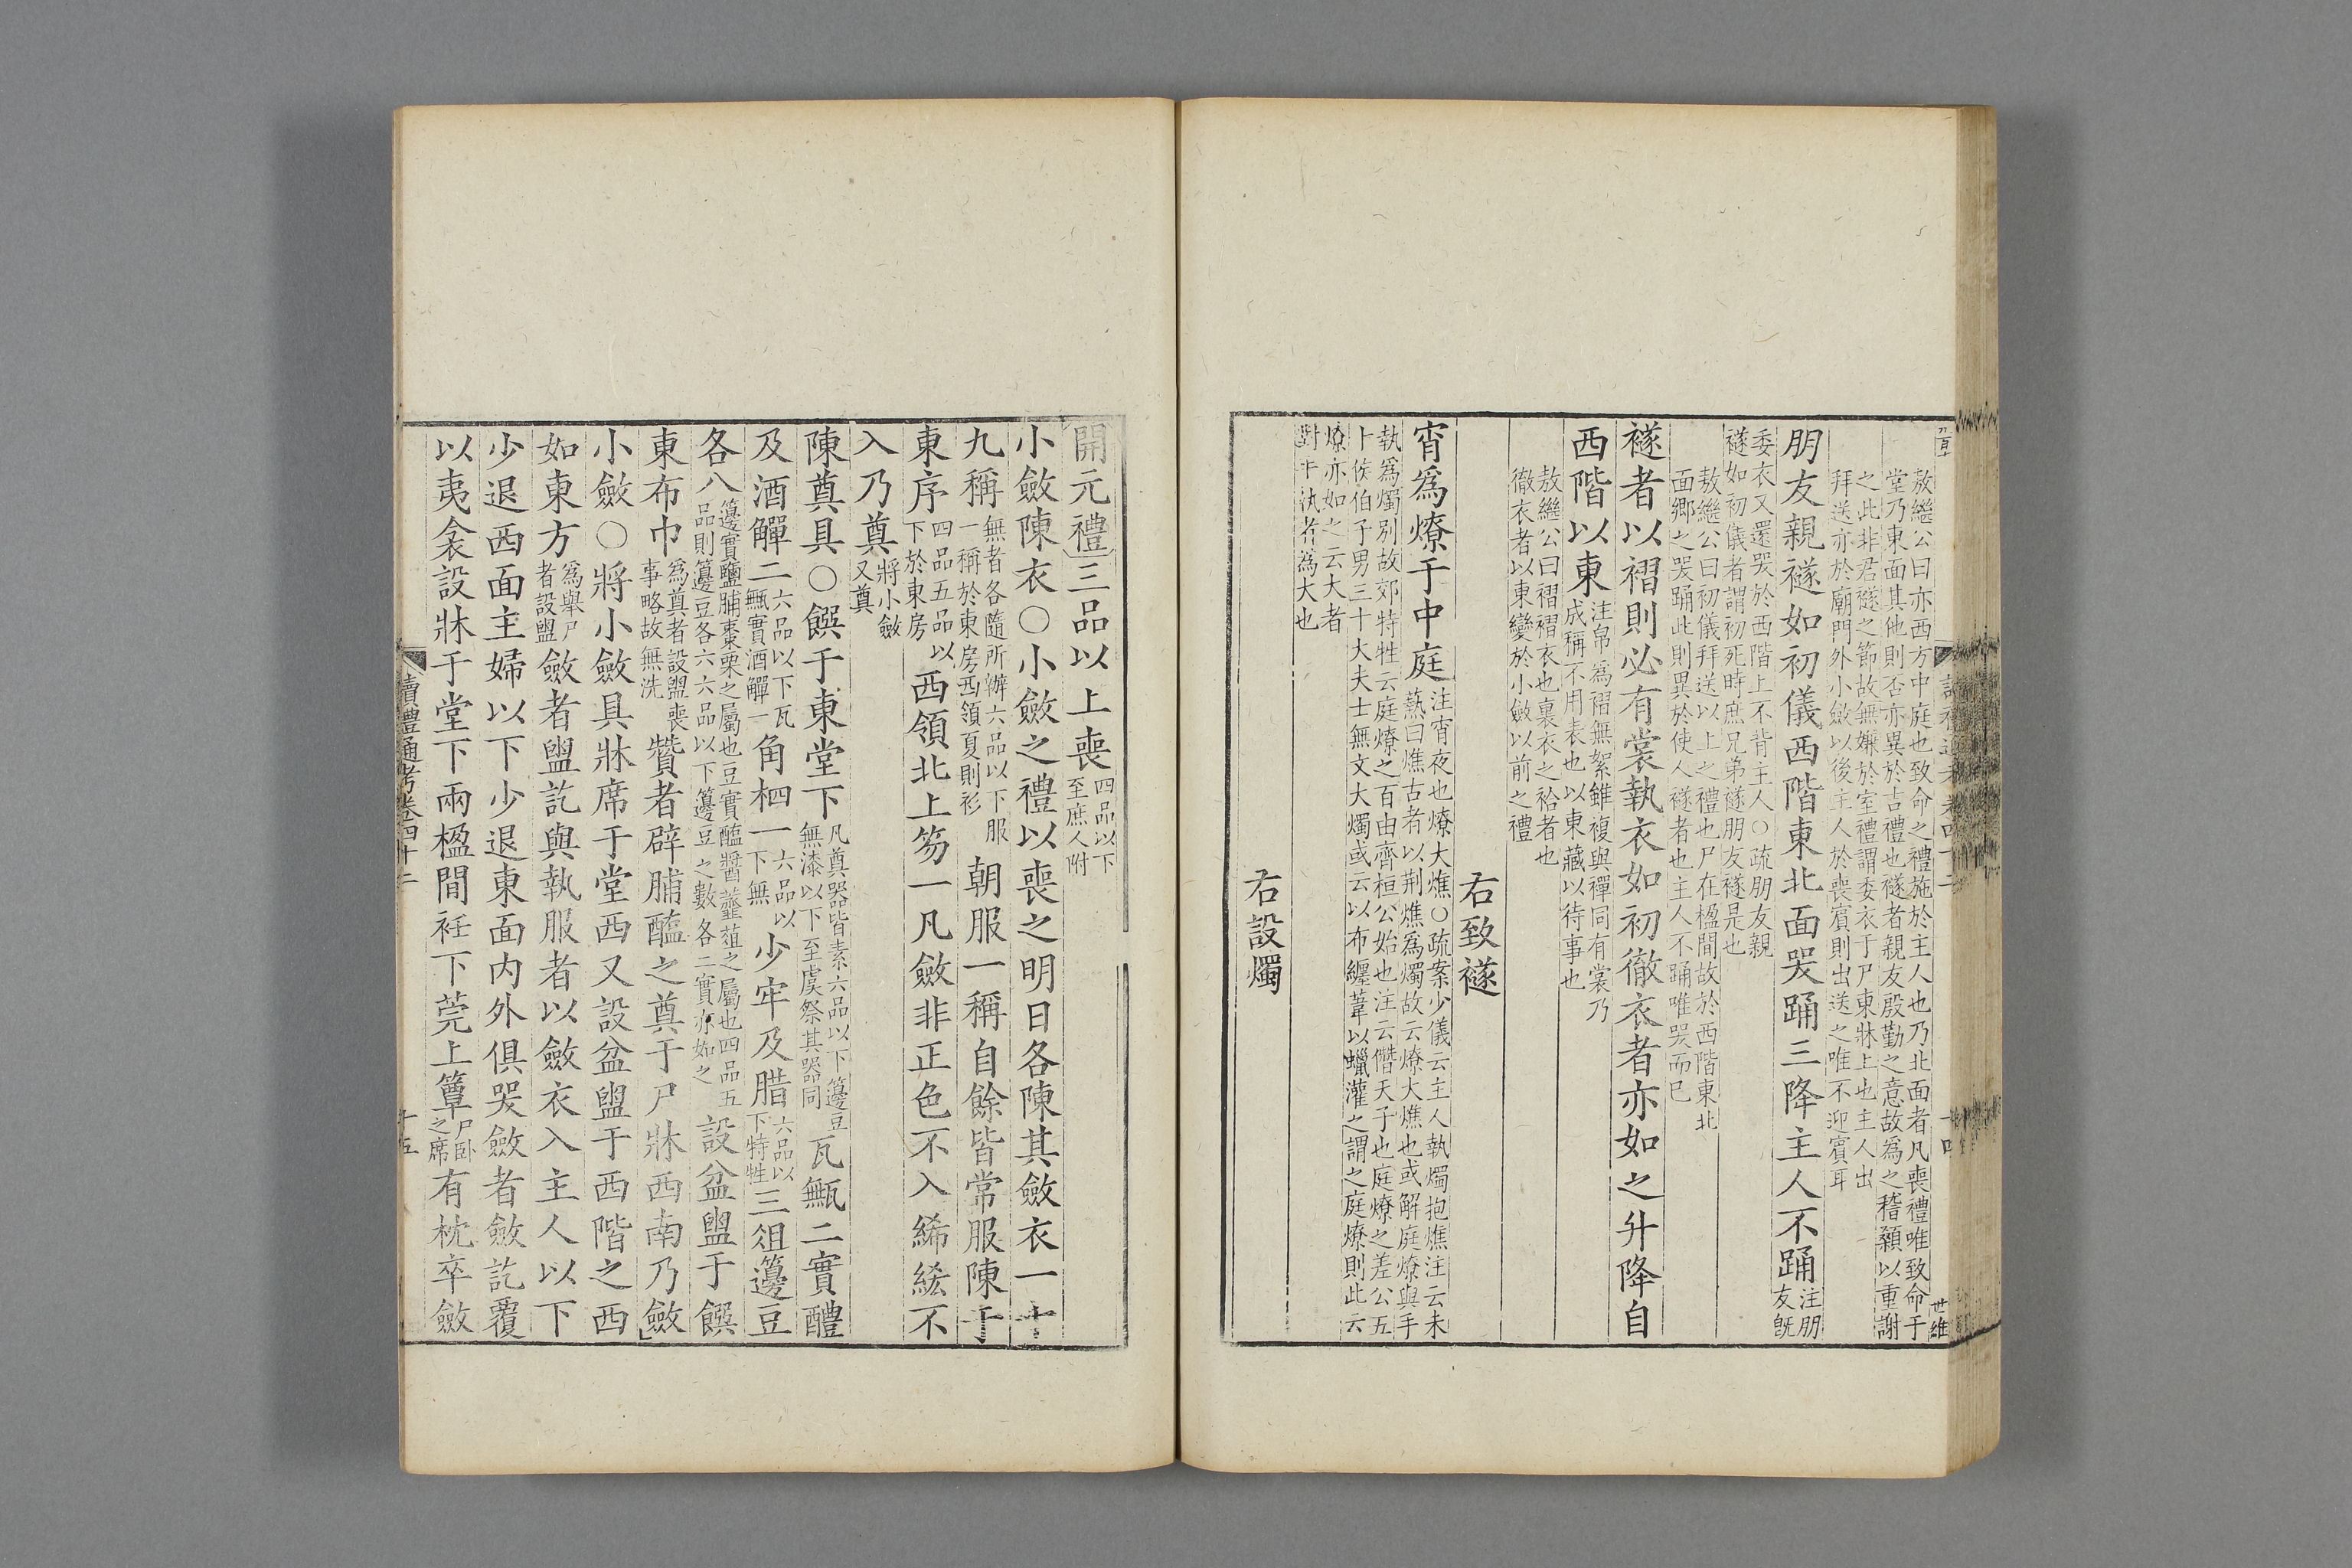 敖繼公曰亦西方中庭也致命之禮施於主人也乃北面者凡喪禮唯致命于
堂乃東面其他則否亦異於吉禮也襚者親友殷勤之意故爲之稽顙以重謝
之此非君襚之節故無嫌於室禮謂委衣于尸東牀上也主人出
拜送亦於廟門外小斂以後主人於喪賓則出送之唯不迎賓耳
朋友親襚如初儀西階東北面哭踊三降主人不踊注朋友旣
委衣又還哭於西階上不背主人○疏朋友親
襚如初儀者謂初死時庶兄弟襚朋友襚是也
敖繼公曰初儀拜送以上之禮也尸在楹間故於西階東北
面鄉之哭踊此則異於使人襚者也主人不踊唯哭而已
襚者以褶則必有裳執衣如初徹衣者亦如之升降自
西階以東注帛爲褶無絮雖複與襌同有裳乃成稱不用表也以東藏以待事也
敖繼公曰褶褶衣也裏衣之袷者也
徹衣者以東變於小斂以前之禮
右致襚
宵爲燎于中庭注宵夜也燎大燋○疏案少儀云主人執燭抱燋注云未爇曰燋古者以荆燋爲燭故云燎大燋也或解庭燎與手
執爲燭別故郊特牲云庭燎之百由齊桓公始也注云僭天子也庭燎之差公五
十侯伯子男三十大夫士無文大燭或云以布纏葦以蠟灌之謂之庭燎則此云
燎亦如之云大者
對手執者爲大也
右設燭
世維
開元禮三品以上喪四品以下至庶人附
小斂陳衣○小斂之禮以喪之明日各陳其斂衣一十
九稱無者各隨所辦六品以下服一稱於東房西領夏則衫朝服一稱自餘皆常服陳于
東序四品五品以下於東房西領北上笏一凡斂非正色不入絺綌不
入乃奠將小斂又奠
陳奠具○饌于東堂下凡奠器皆素六品以下籩豆無漆以下至虞祭其器同瓦甒二實醴
及酒觶二六品以下瓦甒實酒觶一角柶一六品以下無少牢及腊六品以下特牲三俎籩豆
各八籩實鹽脯棗栗之屬也豆實醢醬虀菹之屬也四品五品則籩豆各六六品以下籩豆之數各二實亦如之設盆盥于饌
東布巾爲奠者設盥喪事略故無洗贊者辟脯醢之奠于尸牀西南乃斂
小斂○將小斂具牀席于堂西又設盆盥于西階之西
如東方爲舉尸者設盥斂者盥訖與執服者以斂衣入主人以下
少退西面主婦以下少退東面内外俱哭斂者斂訖覆
以夷衾設牀于堂下兩楹間衽下莞上簟尸卧之席有枕卒斂
讀禮通考卷四十二
十五